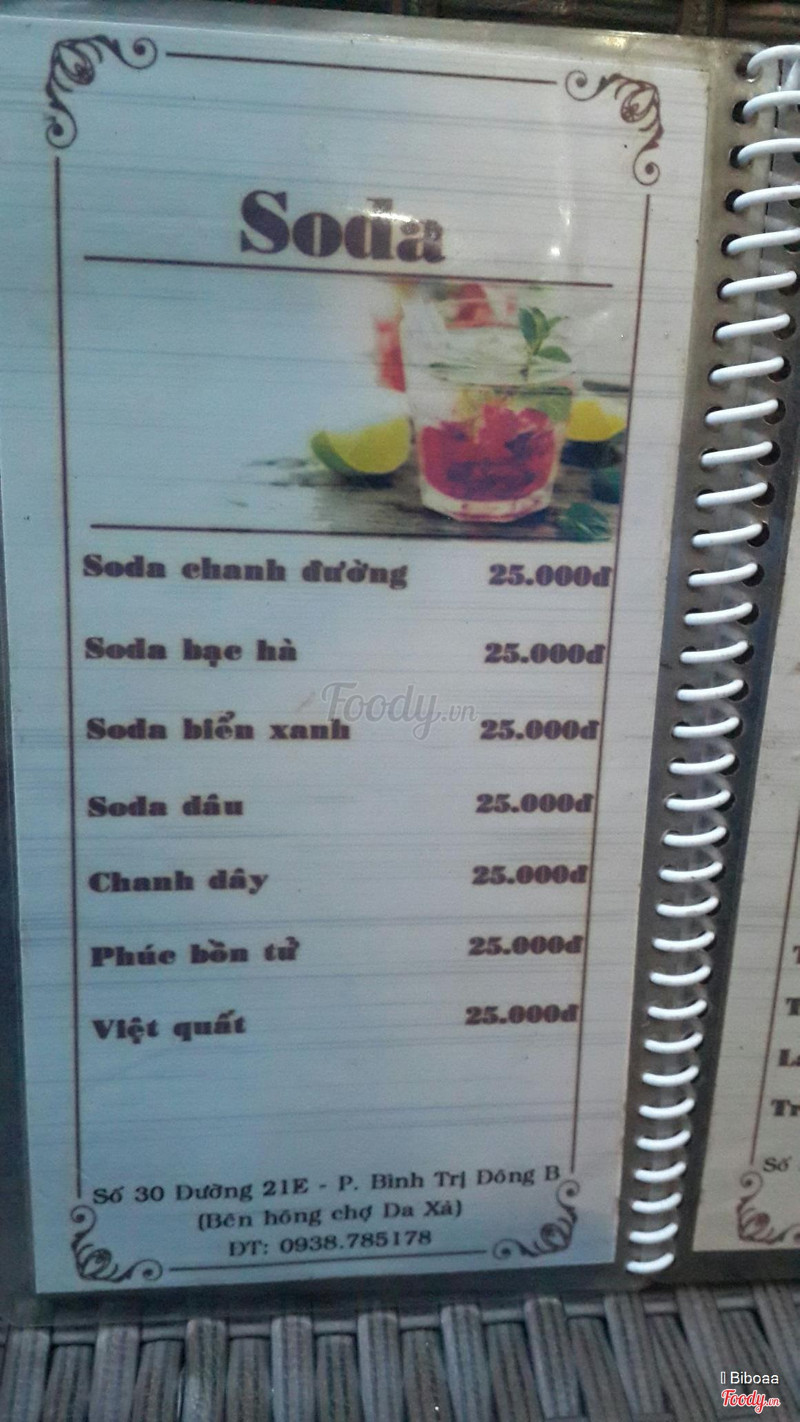 Soda
Soda chanh đường 25.000đ
Soda bạc hà 25.000đ
Foody.vn
Soda biển xanh 25.000đ
Soda dâu 25.000đ
Chanh dây 25.000đ
Phúc bồn tử 25.000đ
Việt quất 25.000đ
Số 30 Đường 21E - P. Bình Trị Đông B
(Bên hông chợ Da Xà)
ĐT: 0938.785178
Số
Biboaa
Foody.vn